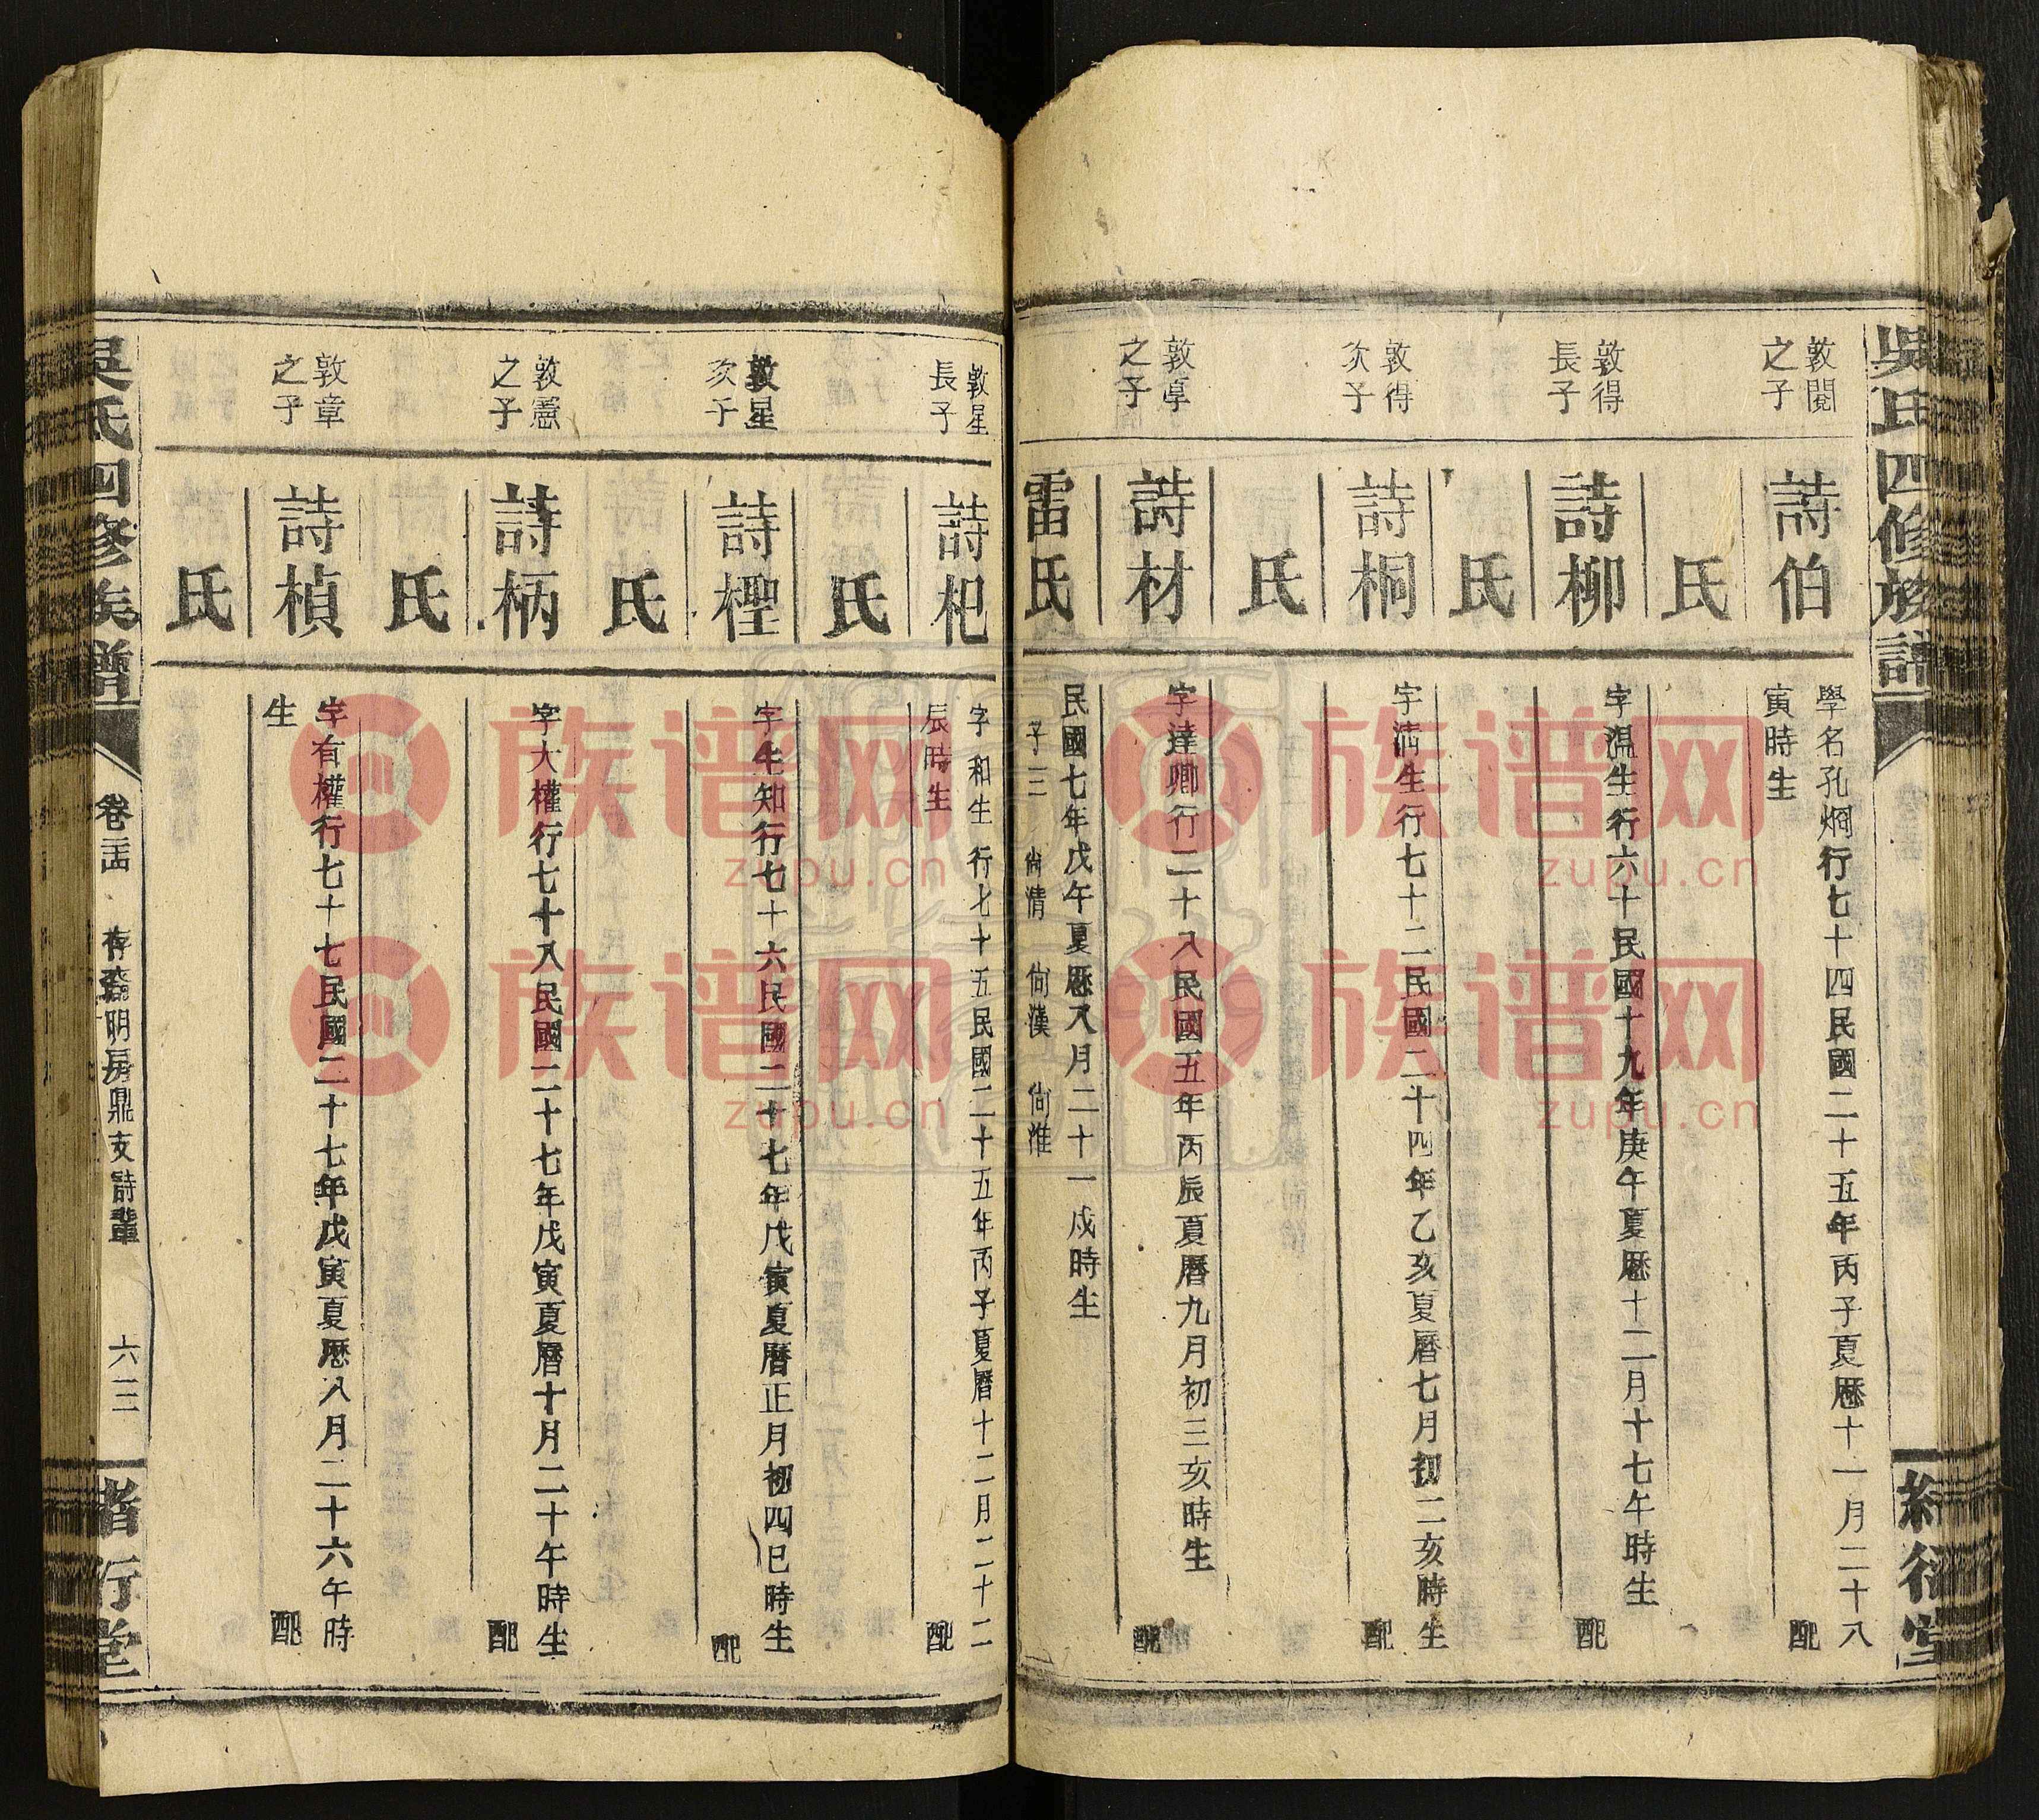 吳氏四修族譜
敦閱之子
詩伯
學名孔炯行七十四民國二十五年丙子夏歷十一月二十八
寅時生
配
氏
敦得長子
詩柳
字溫生行六十民國十九年庚午夏歷十二月十七午時生
配
氏
敦得次子
詩桐
字滿生行七十二民國二十四年乙亥夏曆七月初二亥時生
配
氏
敦卓之子
詩材
字達卿行二十八民國五年丙辰夏曆九月初三亥時生
配
雷氏
民國七年戊午夏歷八月二十一戍時生
子三 尙清 尙漢 尙淮
敦星長子
詩杞
字和生行七十五民國二十五年丙子夏曆十二月二十二
辰時生
配
氏
敦星次子
詩檉
字生知行七十六民國二十七年戊寅夏曆正月初四巳時生
配
氏
敦憲之子
詩柄
字大權行七十八民國二十七年戊寅夏曆十月二十午時生
配
氏
敦章之子
詩楨
字有權行七十七民國二十七年戊寅夏歷八月二十六午時
生
配
氏
吳氏四修族譜
存齋明房鼎支詩輩
六三
族谱网
zupu.cn
族谱网
zupu.cn
族谱网
zupu.cn
族谱网
zupu.cn